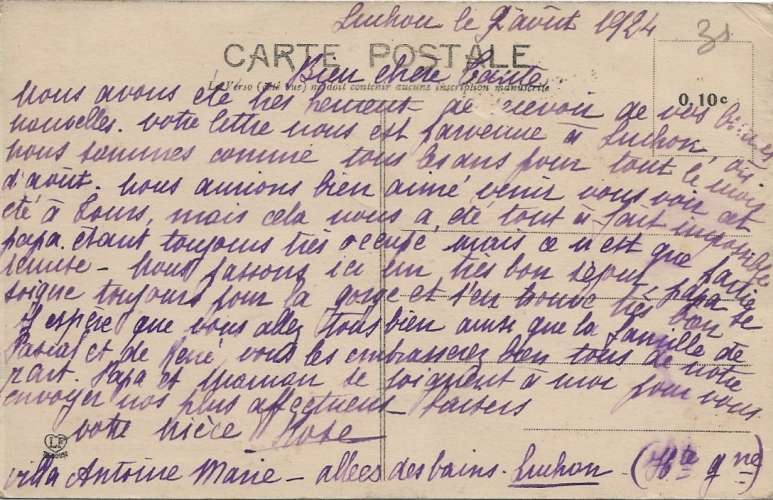 Luchon le 9 août 1924
31
CARTE POSTALE
Bien chère Tante
Le Verso (côté vue) ne doit contenir aucune inscription manuscrite
0,10c
Nous avons été très heureux de recevoir de vos bonnes
nouvelles. votre lettre nous est parvenue à Luchon où
nous sommes comme tous les ans pour tout le mois
d'août. Nous aurions bien aimé venir vous voir cet
été à Tours, mais cela nous a été tout à fait impossible
papa étant toujours très occupé, mais ce n'est que partie
remise - Nous passons ici un très bon séjour, papa se
soigne toujours pour la gorge et s'en trouve très bien
J'espère que vous allez tous bien ainsi que la famille de
et de René, vous les embrasserez bien tous de notre
part. Papa et Maman se joignent à moi pour vous
envoyer nos plus affectueux baisers
votre nièce Rose
LF
villa Antoine Marie - allées des bains - Luchon (Hte gne)